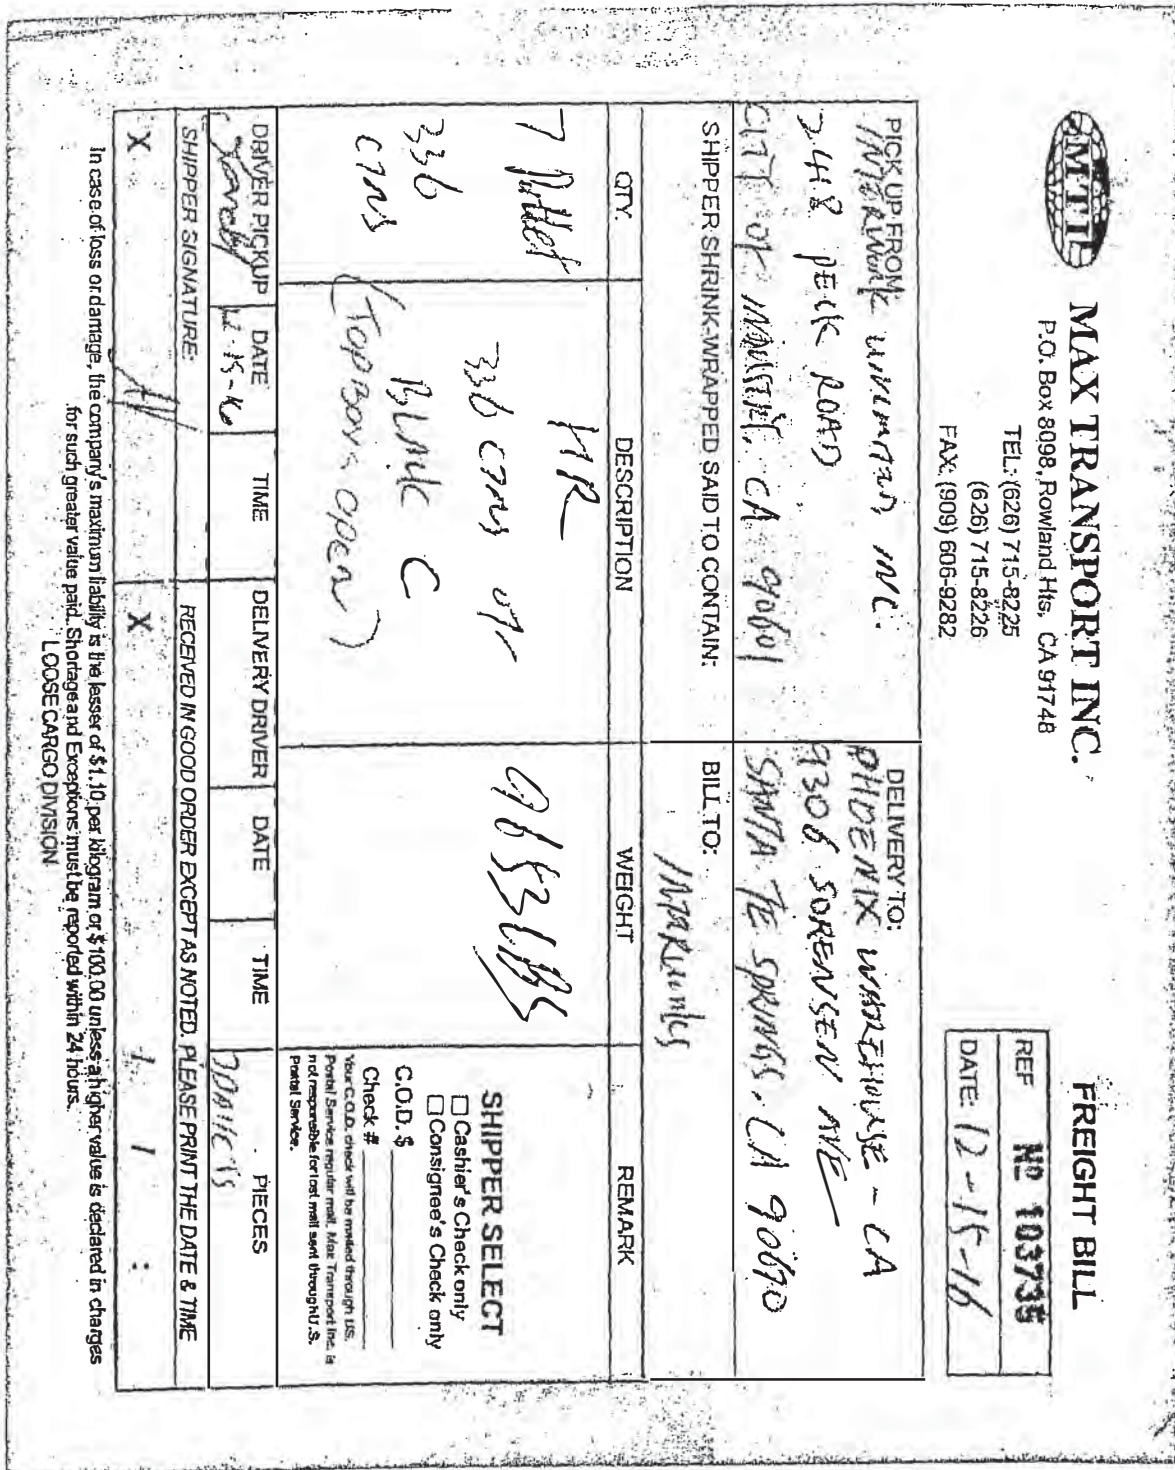 MTI
MAX TRANSPORT INC.
P.O. Box 8098, Rowland Hts, CA 91748
TEL: (626) 715-8225
(626) 715-8226
FAX: (909) 606-9282
FREIGHT BILL
REF Nº 103735
DATE: 12-15-16
PICK UP FROM:
INC.
248 PECK ROAD
CITY OF INDUSTRY, CA 90601
DELIVERY TO:
PHOENIX WAREHOUSE - CA
9306 SORENSEN AVE
SANTA FE SPRINGS, CA 90670
SHIPPER SHRINK-WRAPPED SAID TO CONTAIN:
BILL TO:
QTY. DESCRIPTION WEIGHT REMARK
7 Pallet
336
CTNS
HR
336 CTNS of
BLANK C
(Top Boxs open)
9653 LBS
SHIPPER SELECT
☐ Cashier's Check only
☐ Consignee's Check only
C.O.D. $
Check #
Your C.O.D. check will be mailed through US.
Postal Service regular mail. Max Transport Inc. is
not responsible for lost mail sent through U.S.
Postal Service.
DRIVER PICKUP DATE TIME DELIVERY DRIVER DATE TIME PIECES
SHIPPER SIGNATURE:
RECEIVED IN GOOD ORDER EXCEPT AS NOTED. PLEASE PRINT THE DATE & TIME
X X / / :
In case of loss or damage, the company's maximum liability is the lesser of $1.10 per kilogram or $100.00 unless a higher value is declared in charges
for such greater value paid. Shortage and Exceptions must be reported within 24 hours.
LOOSE CARGO DIVISION